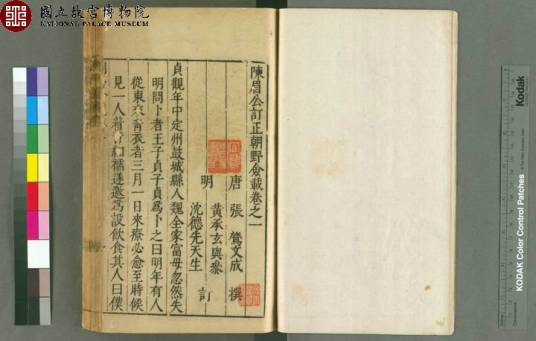 國立故宮博物院
NATIONAL PALACE MUSEUM
陳眉公訂正朝野僉載卷之一
唐 張鷟文成 撰
明 黃承玄與參
沈德先天生 訂
貞觀年中定州鼓城縣人魏全家富母忽然失
明問卜者王子貞子貞為卜之曰明年有人
從東來青衣者三月一日來療必愈至時候
見一人着青紬襦遂邀為設飲食其人曰僕
Kodak
KODAK Color Control Patches